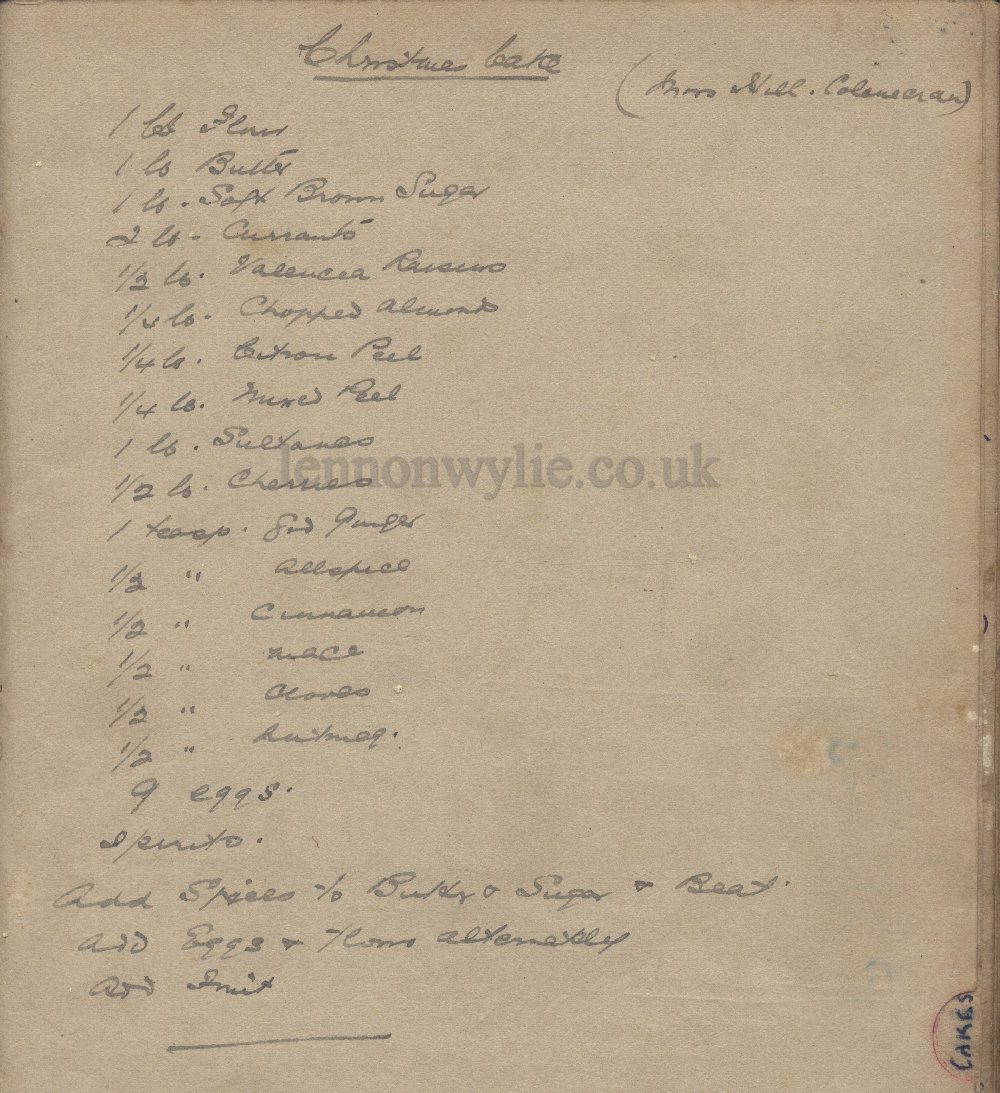 Christmas Cake
(Miss Hill. Colinecran)
1 lb Flour
1 lb Butter
1 lb. Soft Brown Sugar
2 lb. Currants
1/2 lb. Valencea Raisins
1/4 lb. Chopped Almonds
1/4 lb. Citron Peel
1/4 lb. Mixed Peel
1 lb. Sultanas
lennonwylie.co.uk
1/2 lb. Cherries
1 teasp. Grd Ginger
1/2 " Allspice
1/2 " Cinnamon
1/2 " Mace
1/2 " Cloves
1/2 " Nutmeg.
9 eggs.
Spirits.
Add Spices to Butter & Sugar & Beat.
Add Eggs & Flour alternately
Add Fruit
CAKES